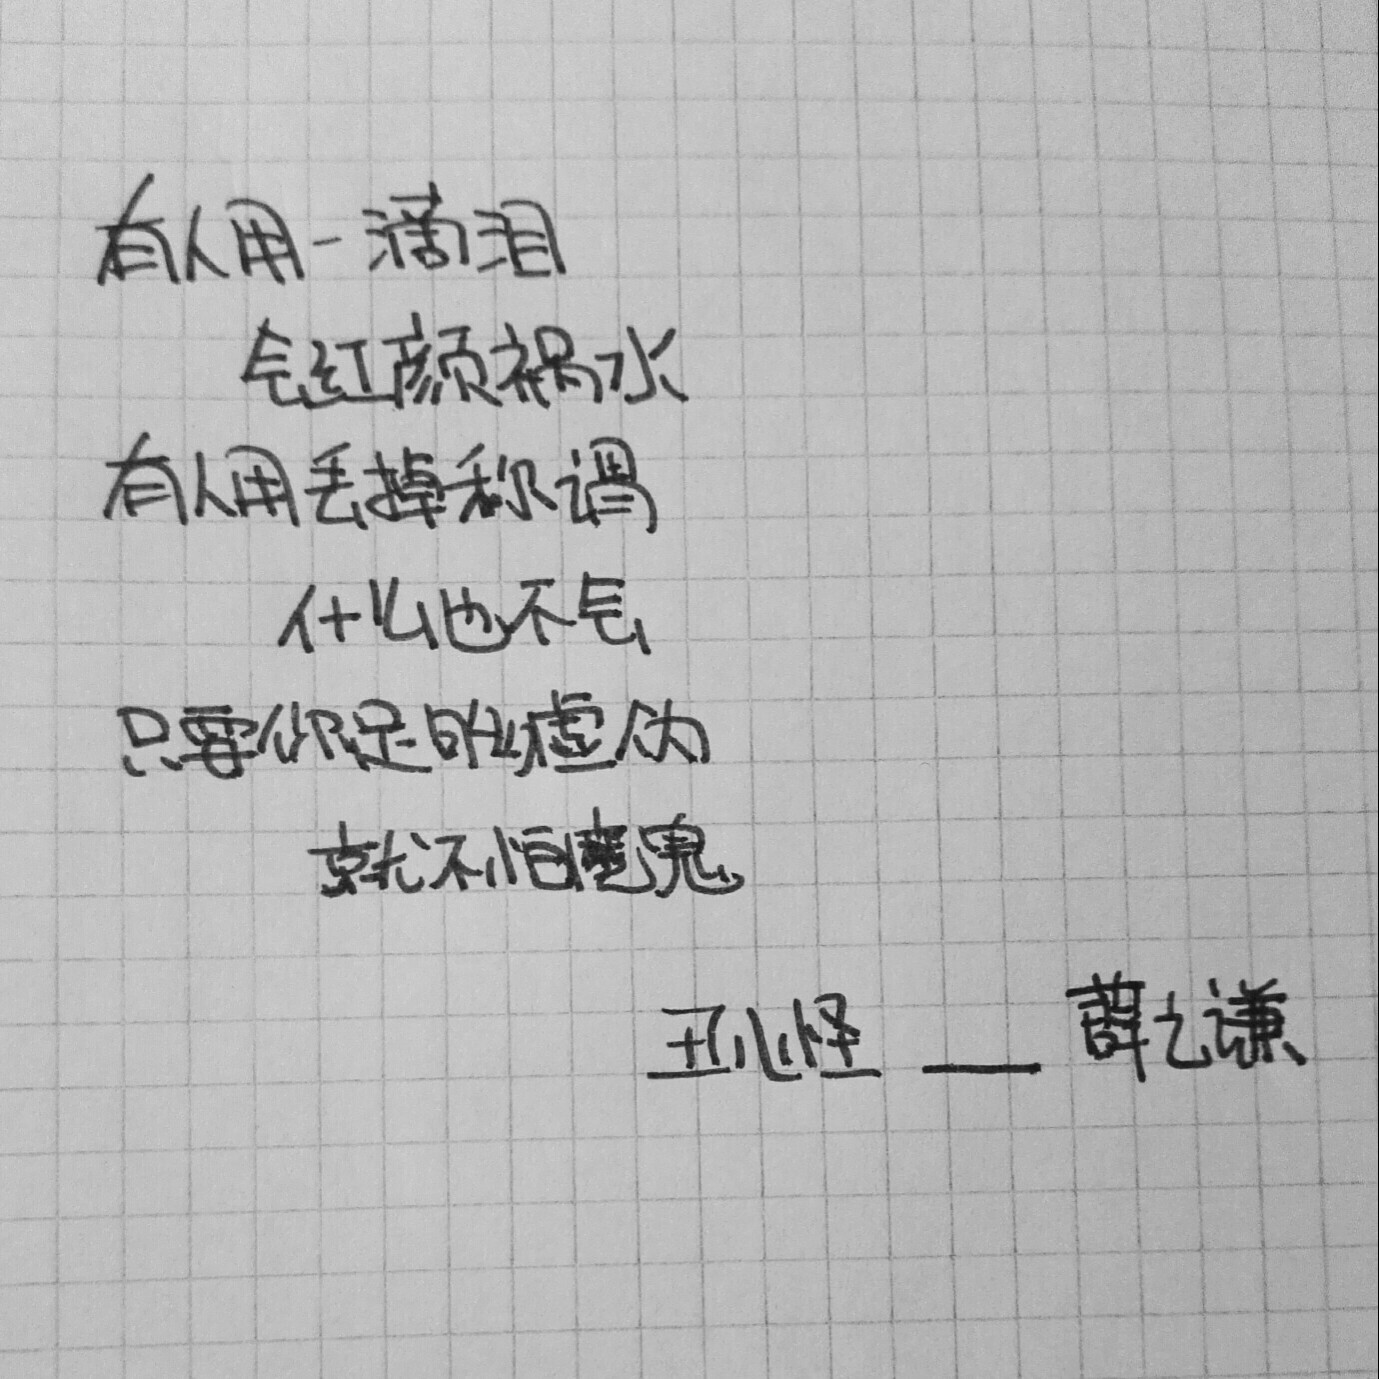 有人用一滴泪
会红颜祸水
有人用丢掉称谓
什么也不会
只要你足够虚伪
就不怕魔鬼
丑八怪 —— 薛之谦